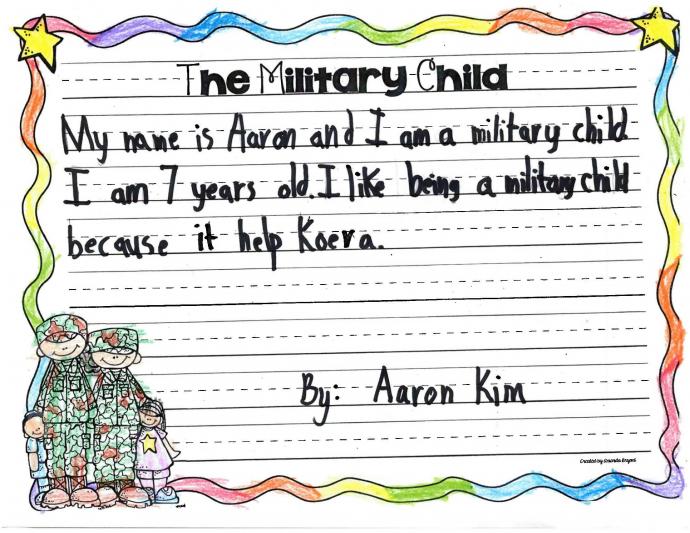 The Military Child
My name is Aaron and I am a military child
I am 7 years old. I like being a military child
because it help Koera.
By: Aaron Kim